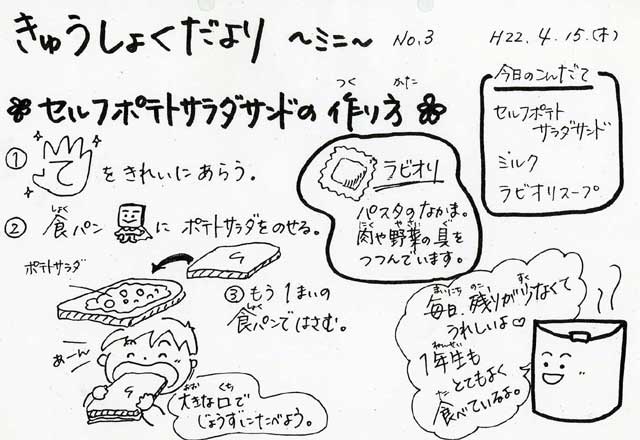 きゅうしょくだより ～ミニ～ No.3 H22.4.15.(木)
今日のこんだて
セルフポテト
サラダサンド
ミルク
ラビオリスープ
つく かた
セルフポテトサラダサンドの作り方
① てをきれいにあらう。
しょく
② 食パンにポテトサラダをのせる。
ポテトサラダ
③ もう1まいの
しょく
食パンではさむ。
あーん
おお くち
大きな口で
じょうずにたべよう。
ラビオリ
パスタのなかま。
にく やさい ぐ
肉や野菜の具を
つつんでいます。
まいにち のこ すく
毎日、残りが少なくて
うれしいよ♡
ねんせい
1年生も
とてもよく
た
食べているよ。